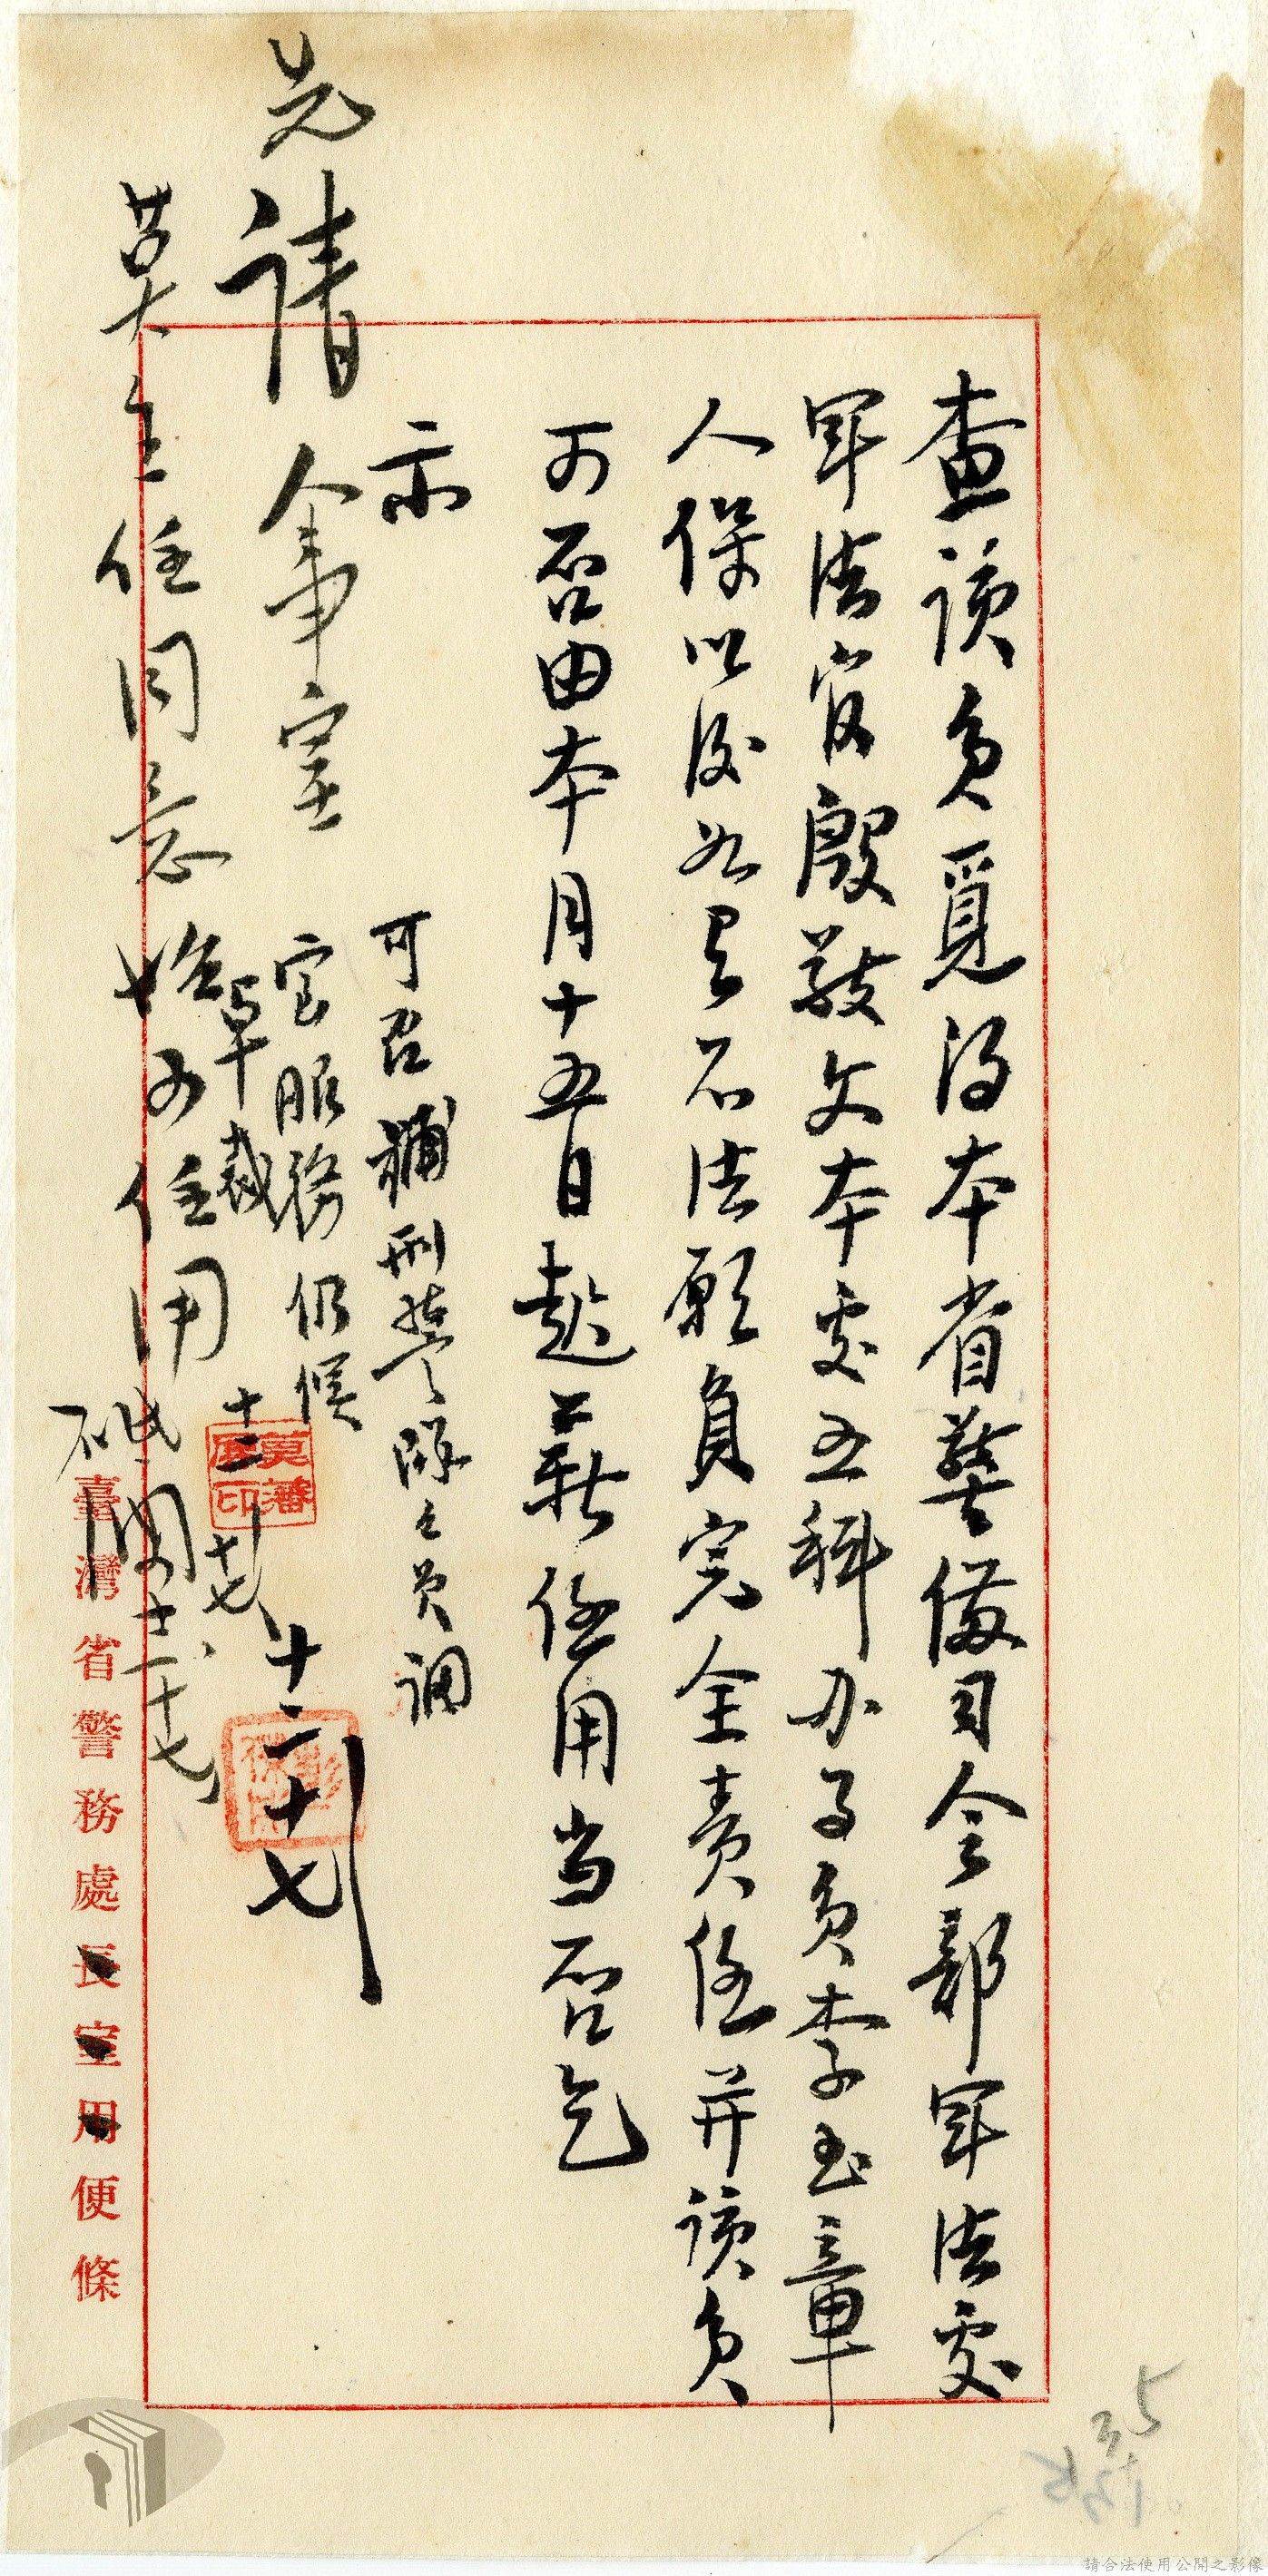 查該員覓得本省警備司令部軍法處
軍法官殷敬文本處五科办事員李玉章
人保以後如有不法願負完全責任并該員
可否由本月十五日起薪任用当否乞
示
可否補刑警隊隊員調
室服務仍候
卓裁
十二
十七
莫藩
印
十二
十七
先請
人事室
莫主任同意始可任用
十二
十七
臺灣省警務處長室用便條
35
請合法使用公開之影像